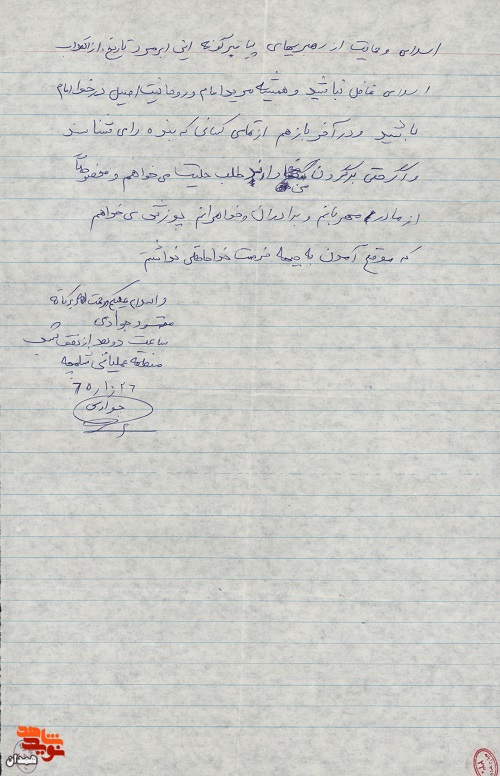 اسلامی و حمایت از رهبریهای پیامبرگونه این ابرمرد تاریخ، از انقلاب
اسلامی غافل نباشید و همیشه مرید امام و روحانیت اصیل در خط امام
باشید و در آخر باز هم از تمامی کسانی که بنده را می شناسند
و اگر حقی برگردن من دارند طلب حلیت می خواهم و مخصوصاً
از مادر مهربانم و برادران و خواهرانم پوزش می خواهم
که موقع آمدن به جبهه فرصت خداحافظی نداشتم
والسلام علیکم و رحمت الله و برکاته
جوادی
ساعت دو بعد از نصف شب
منطقه عملیاتی شلمچه
جوادی
نوید شاهد
همدان